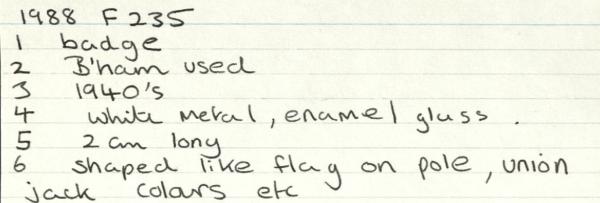 1988 F 235
1 badge
2 B'ham used
3 1940's
4 white metal, enamel glass.
5 2 cm long
6 shaped like flag on pole, union
jack colours etc